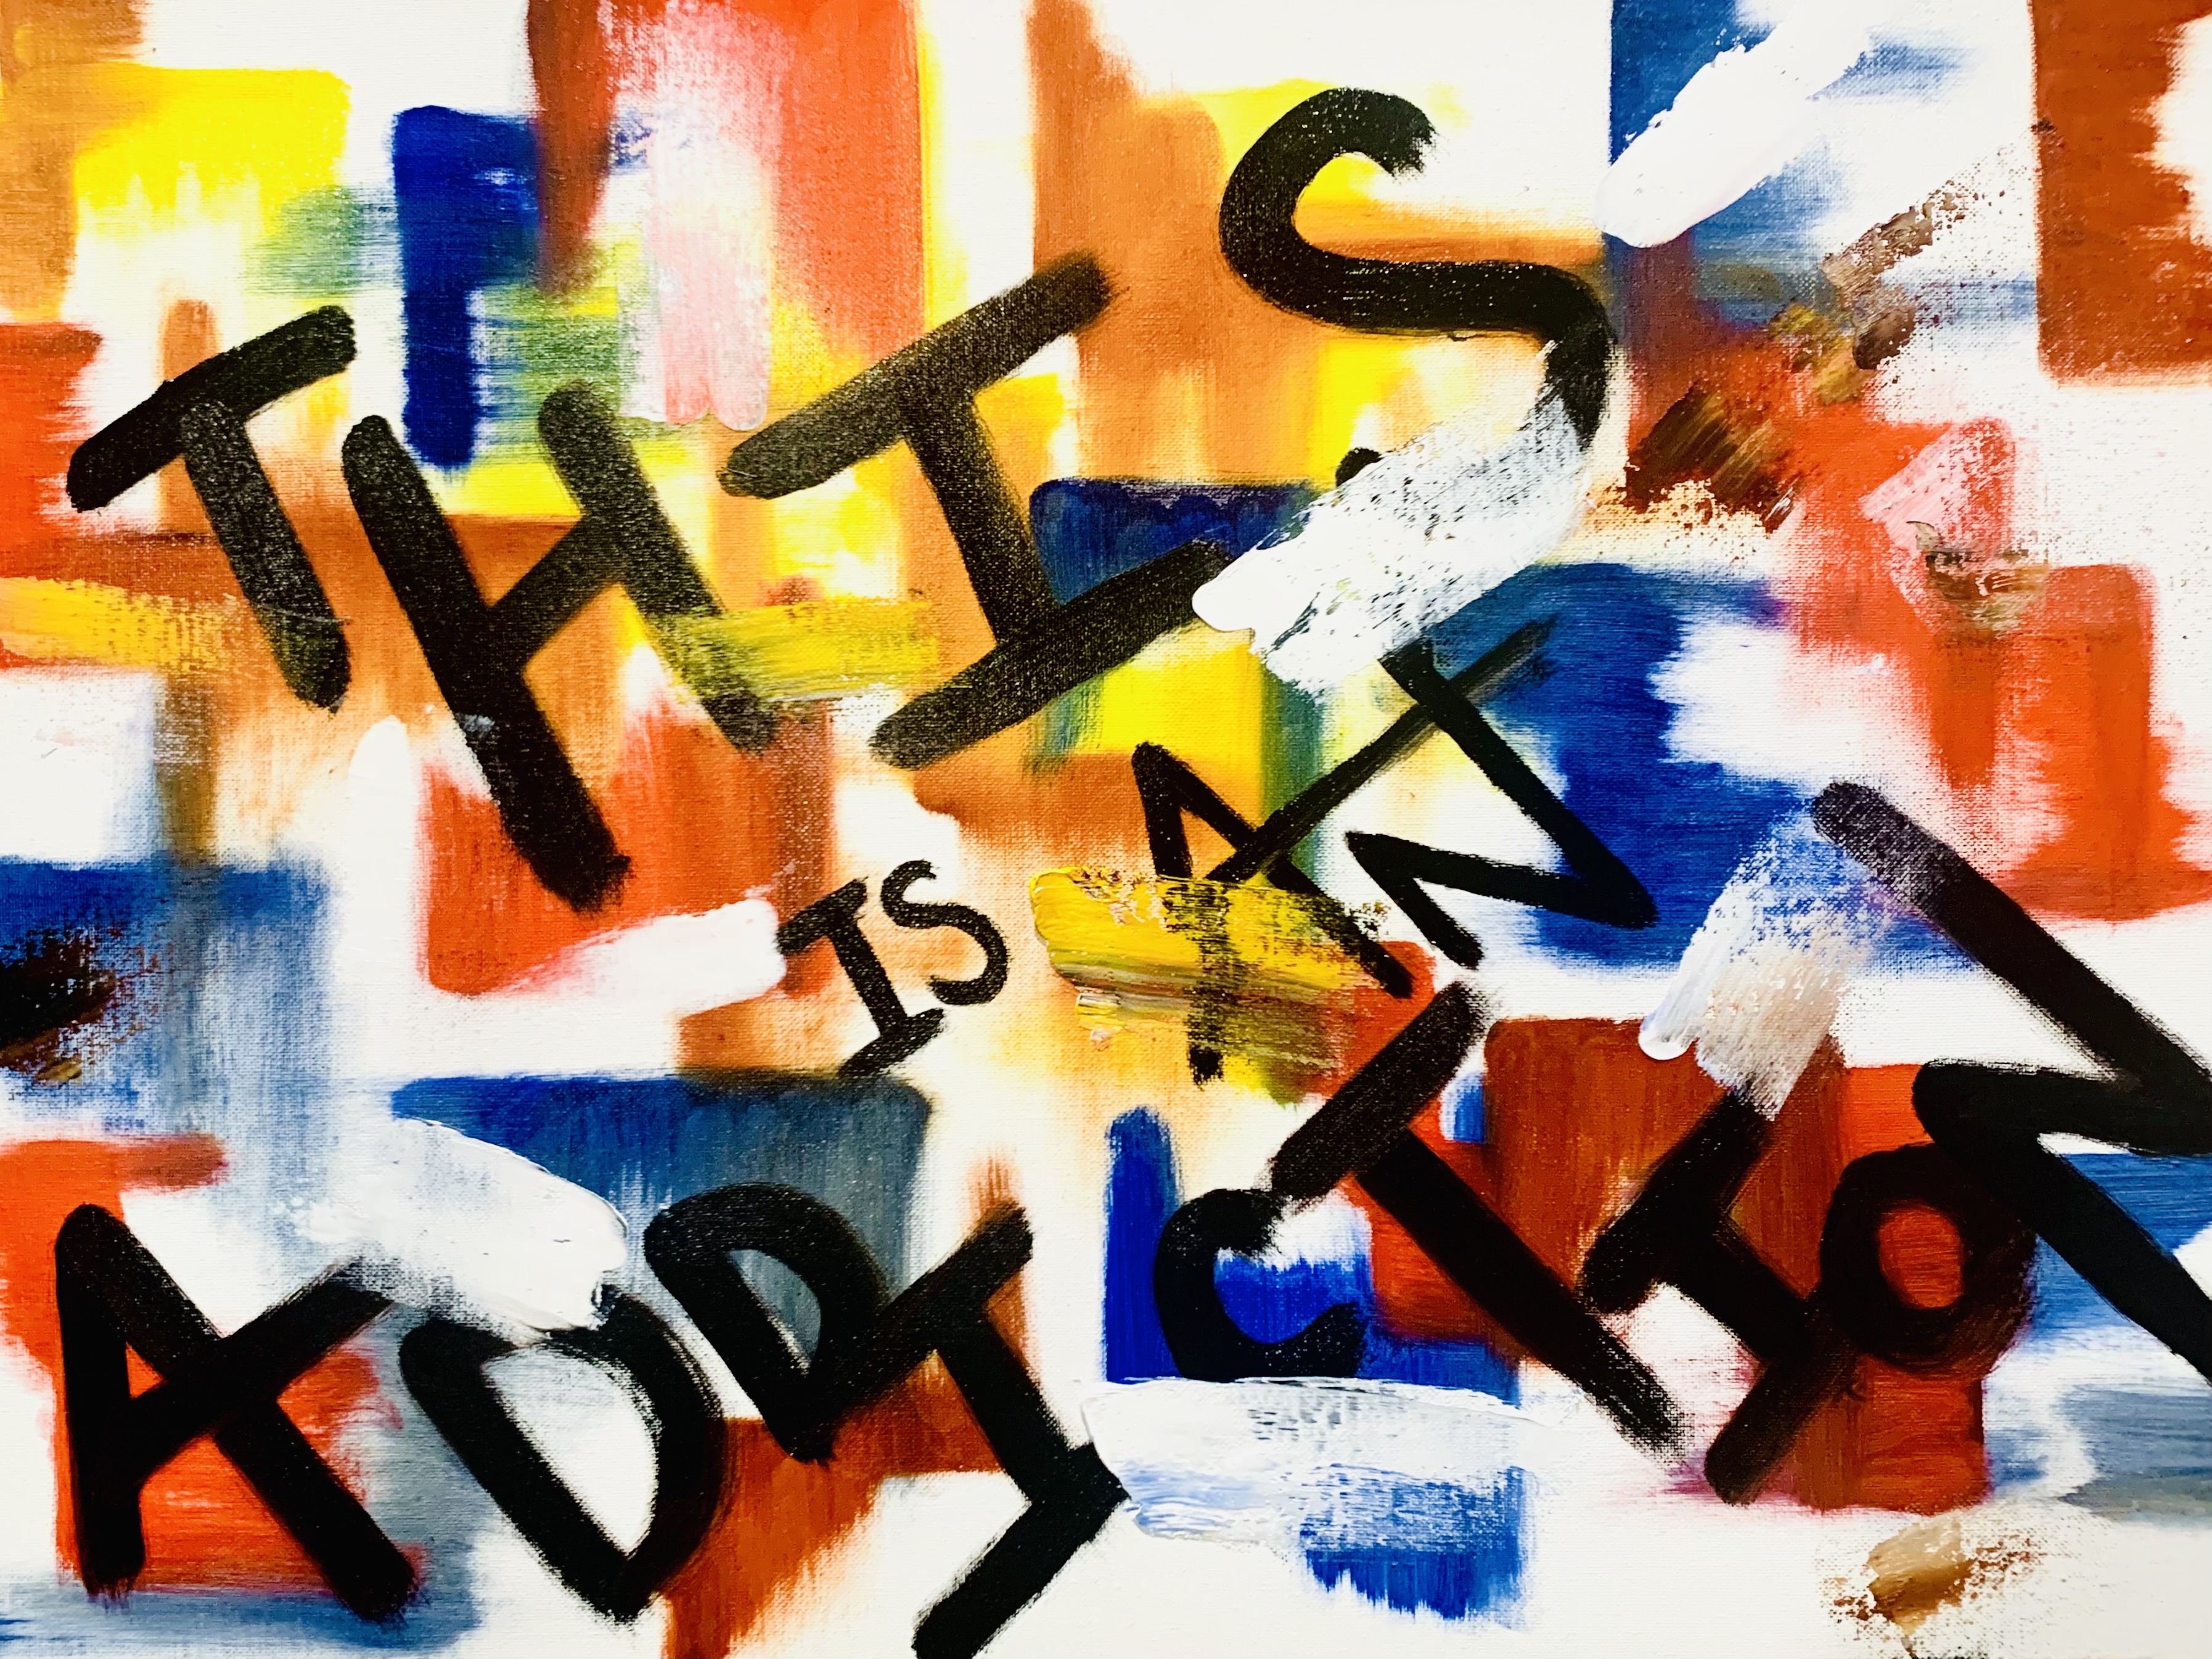 THIS
IS AN
ADDICTION